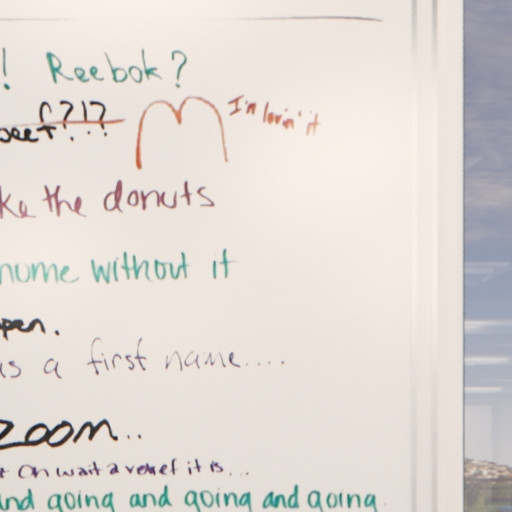 ! Reebok?
beef?!?
I'm lovin' it
ke the donuts
home without it
pen.
as a first name....
zoom..
Oh wait a relief it is...
and going and going and going